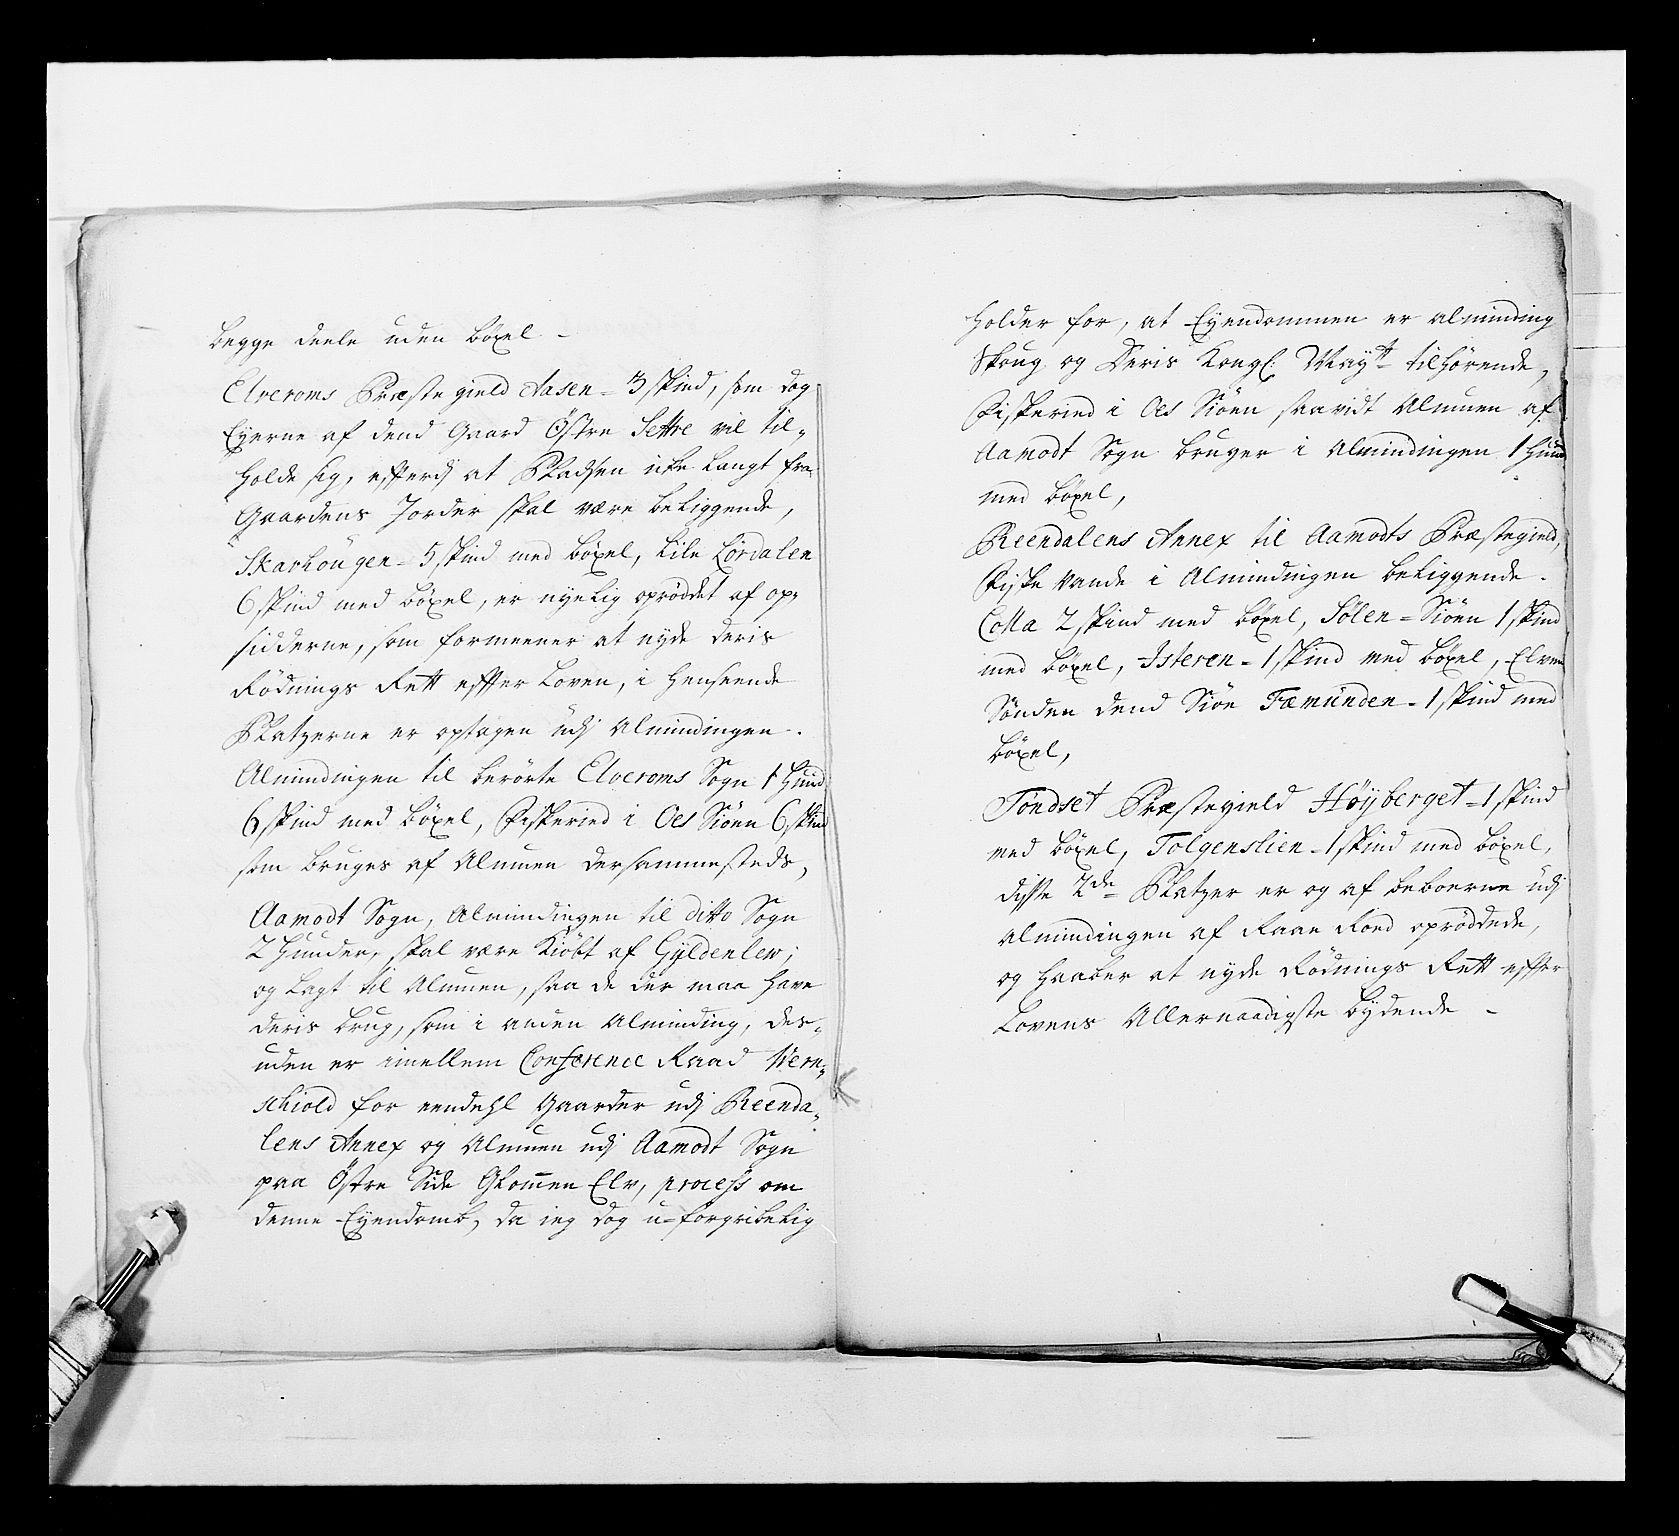 begge deele uden böxel –
Elveroms Præste gield Aasen = 3 skind, som dog
Eyerne af dend Gaard Östre Sette vil til„
holde sig, efferdj at Pladsen icke langt fra
Gaardens Jorder skal være beliggende,
Skarhougen = 5 skind med böxel, Lile Lördalen
6 skind med böxel, er nyelig oprøddet af op„
sidderne, som formeener at nyde deris
Rödnings Rett effter Loven, i henseende
Platzerne er optagen udj Almindingen.
Almindingen til berörte Elveroms Sogn 1 Huud
6 skind med böxel, Fiskeried i Oes Siöen 6 skind
som bruges af Almuen dersammesteds,
Aamodt Sogn, Almindingen til ditto Sogn
2 Huuder, skal være Kiöbt af Gyldenlew;
og lagt til Almuen, saa de der maa have
deris brug, som i anden Alminding, des„
uden er imellem Conference Raad Wern„
schiold for eendehl Gaarder udj Reenda„
lens Annex og Almuen udj Aamodt Sogn
paa Östre Side Glommen Elv, process om
denne Eyendomb, da ieg dog u=forgribelig
holder for, at Eyendommen er alminding
Skoug og Deris Kongl: Maytt tilhörende,
Fiskeried i Oes Siöen saavidt Almuen af
Aamodt Sogn bruger i Almindingen 1 Huud
med böxel,
Reendalens Annex til Aamodts Præstegield,
Fiske vande i Almindingen beliggende.
2 skind med böxel, Sölen = Siöen 1 skind
med böxel, Isteren = 1 skind med böxel, Elven
Sönden dend Siöe Fæmunden = 1 skind med
böxel,
Töndset Præstegield Höyberget = 1 skind
med böxel, Tolgenslien = 1 skind med böxel,
disse 2de Platzer er og af beboerne udj
Almindingen af Raae Roed oprøddede,
og haaber at nyde Rödnings Rett effter
Lovens Allernaadigste bydende –